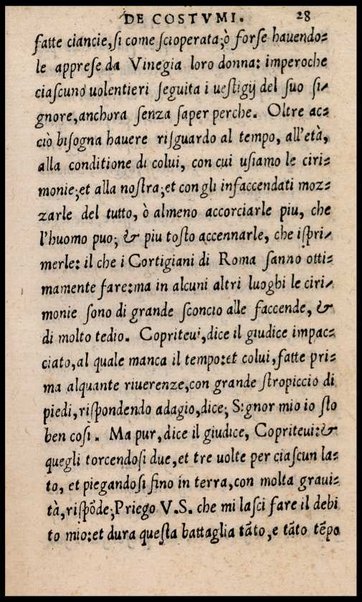 DE COSTVMI. 28
fatte ciancie, si come scioperata; ò forse hauendo-
le apprese da Vinegia loro donna: imperoche
ciascuno uolentieri seguita i uestigij del suo si-
gnore, anchora senza saper perche. Oltre ac-
ciò bisogna hauere risguardo al tempo, all'età,
alla conditione di colui, con cui usiamo le ciri-
monie; et alla nostra; et con gli infaccendati moz-
zarle del tutto, ò almeno accorciarle piu, che
l'huomo puo; & piu tosto accennarle, che ispri-
merle: il che i Cortigiani di Roma sanno otti-
mamente fare: ma in alcuni altri luoghi le ciri-
monie sono di grande sconcio alle faccende, &
di molto tedio. Copriteui, dice il giudice impac-
ciato, al quale manca il tempo: et colui, fatte pri-
ma alquante riuerenze, con grande stropiccio di
piedi, rispondendo adagio, dice, Signor mio io sto
ben cosi. Ma pur, dice il giudice, Copriteui: &
quegli torcendosi due, et tre uolte per ciascun la-
to, et piegandosi fino in terra, con molta graui-
tà, rispõde; Priego V.S. che mi lasci fare il debi
to mio: et dura questa battaglia tãto, e tãto tẽpo